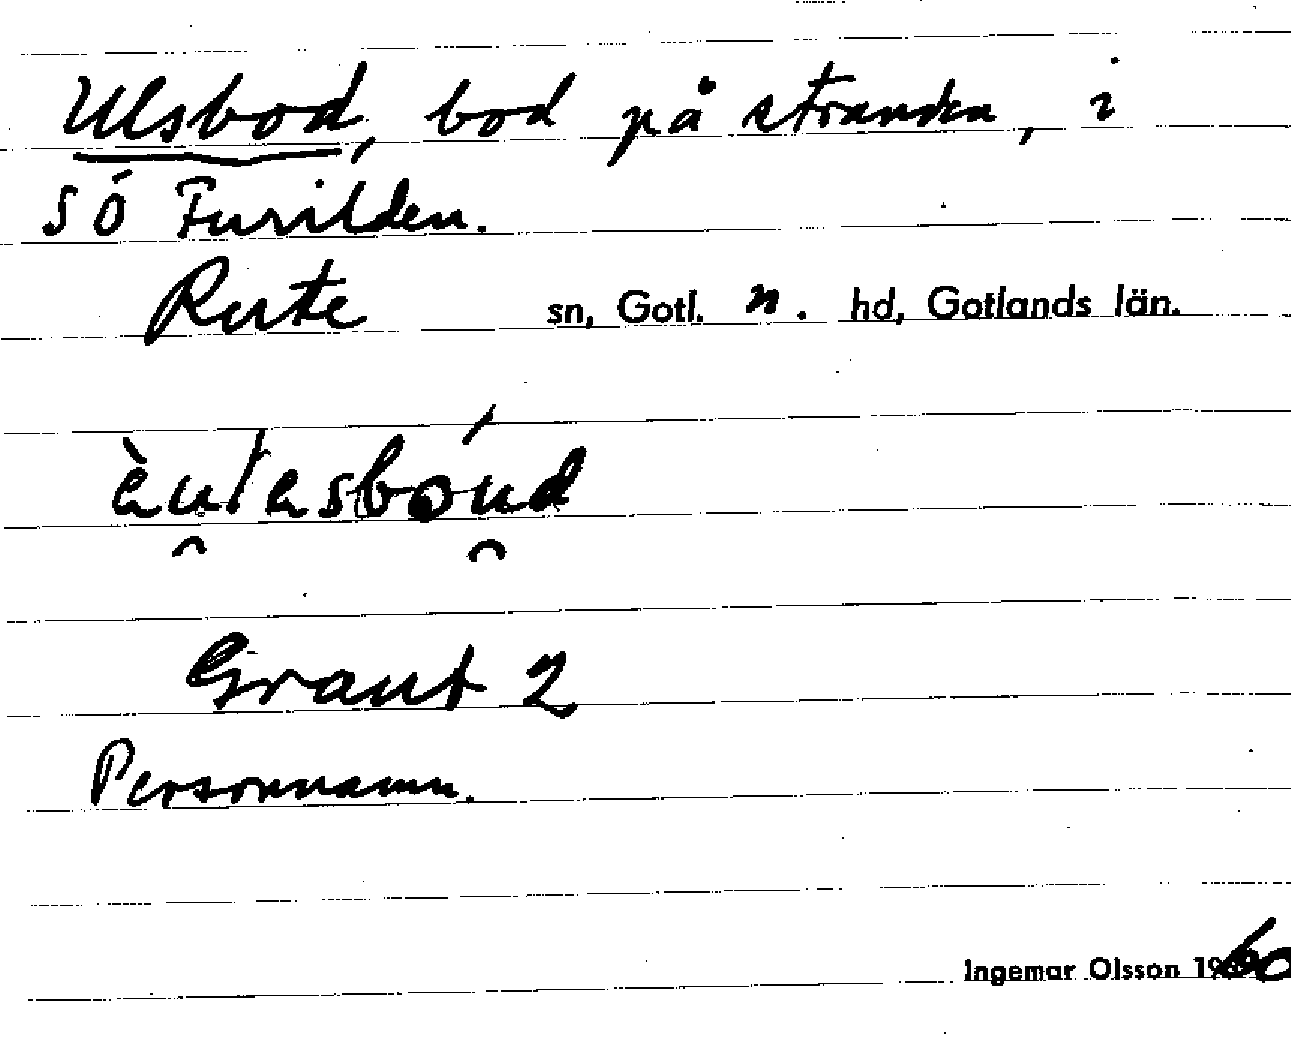 Ulsbod, bod på stranden, i
SÖ Furilden.
Rute sn, Gotl. n. hd, Gotlands län.
Graut 2
Personnamn.
Ingemar Olsson 1960